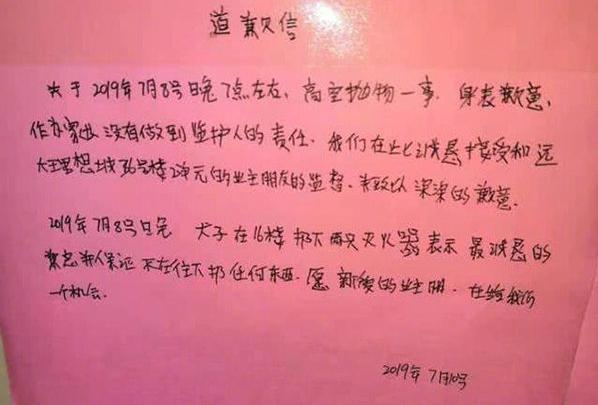 道歉信
关于2019年7月8号日晚7点左右、高空抛物一事.身表歉意,
作为家出没有做到监护人的责任.我们在此诚恳接受和远
大理想城16号楼2单元的业主朋友的监督.并致以深深的歉意.
2019年7月8号日晚 犬子在16楼扔下两只灭火器表示最诚恳的
歉意并保证不在往下扔任何东西.愿新的业主朋.在给我们
一个机会.
2019年7月10号